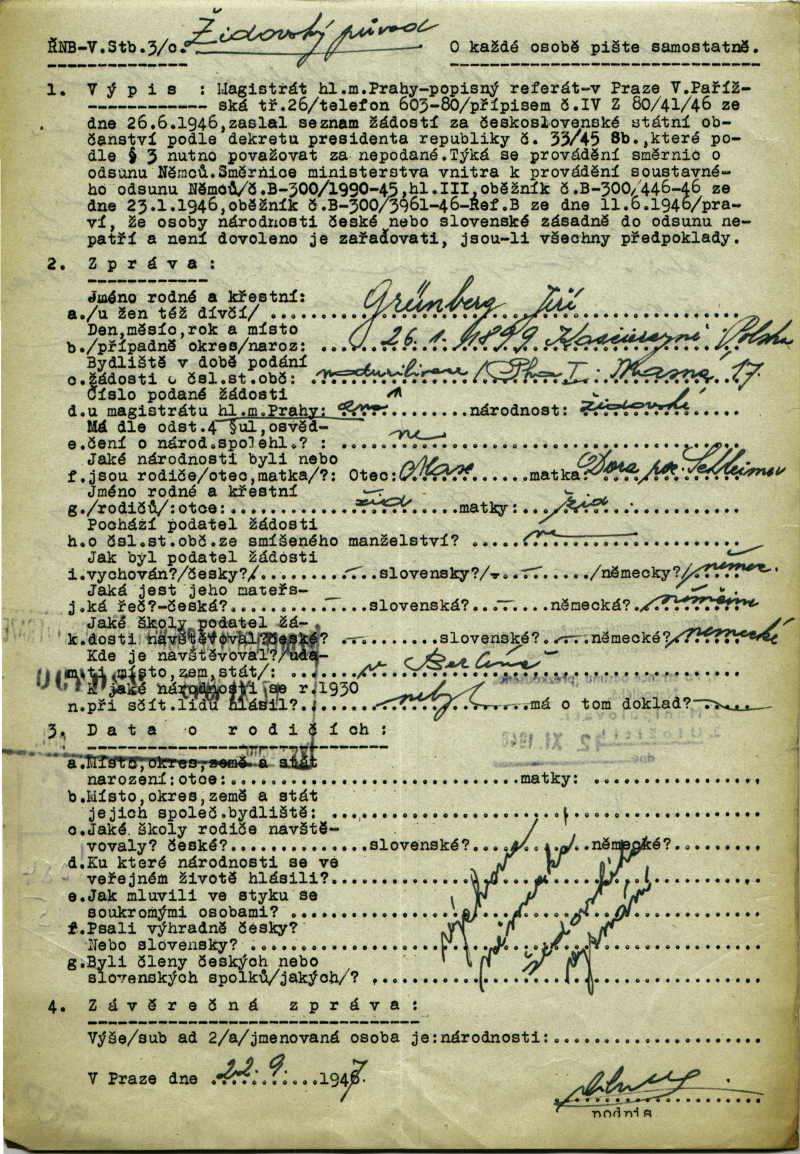 Židovský původ
ŘNB-V.Stb.3/c. O každé osobě pište samostatně.
1. V ý p i s : Magistrát hl.m.Prahy-popisný referát-v Praze V.Paříž-
ská tř.26/telefon 603-80/přípisem č.IV Z 80/41/46 ze
dne 26.6.1946,zaslal seznam žádostí za československé státní ob-
čanství podle dekretu presidenta republiky č. 33/45 Sb.,které po-
dle § 3 nutno považovat za nepodané.Týká se provádění směrnic o
odsunu Němců.Směrnice ministerstva vnitra k provádění soustavné-
ho odsunu Němců/č.B-300/1990-45,hl.III,oběžník č.B-300/446-46 ze
dne 23.1.1946,oběžník č.B-300/3961-46-Ref.B ze dne 11.6.1946/pra-
ví, že osoby národnosti české nebo slovenské zásadně do odsunu ne-
patří a není dovoleno je zařaďovati, jsou-li všechny předpoklady.
2. Z p r á v a :
Jméno rodné a křestní:
a./u žen též dívčí/ Grünberg Jiří
Den,měsíc,rok a místo
b./případně okres/naroz: 26.1.1899 Polsko
Bydliště v době podání
c.žádosti o čsl.st.obč: Pha I. 17.
Číslo podané žádosti
d.u magistrátu hl.m.Prahy: národnost: židovské
Má dle odst.4 §ul,osvěd-
e.čení o národ.spolehl.? : ne
Jaké národnosti byli nebo
f.jsou rodiče/otec,matka/?: Otec: Max matka: Dora roz.
Jméno rodné a křestní
g./rodičů/:otce: žid matky: žid
Pochází podatel žádosti
h.o čsl.st.obč.ze smíšeného manželství? ne
Jak byl podatel žádosti
i.vychován?/česky?/ — slovensky?/ — /německy?/ němec.
Jaká jest jeho mateřs-
j.ká řeč?-česká? — slovenská? — německá? němčina
Jaké školy podatel žá-
k.dosti navštěvoval?české? — slovenské? — německé? německé
Kde je navštěvoval?/uda-
m.ti místo,zem,stát/: v Berlíně
K jaké národnosti se r.1930
n.při sčít.lidu hlásil? nebyl má o tom doklad? —
3. D a t a o r o d i č í c h :
a.Místo,okres,země a stát
narození:otce: matky:
b.Místo,okres,země a stát
jejich společ.bydliště:
c.Jaké školy rodiče navště-
vovaly? české? slovenské? německé?
d.Ku které národnosti se ve
veřejném životě hlásili?
e.Jak mluvili ve styku se
soukromými osobami?
f.Psali výhradně česky?
Nebo slovensky?
g.Byli členy českých nebo
slovenských spolků/jakých/?
výchova
německá
židovského
vyznání
4. Z á v ě r e č n á z p r á v a :
Výše/sub ad 2/a/jmenovaná osoba je:národnosti:
V Praze dne 22.9. 1947.
podpis